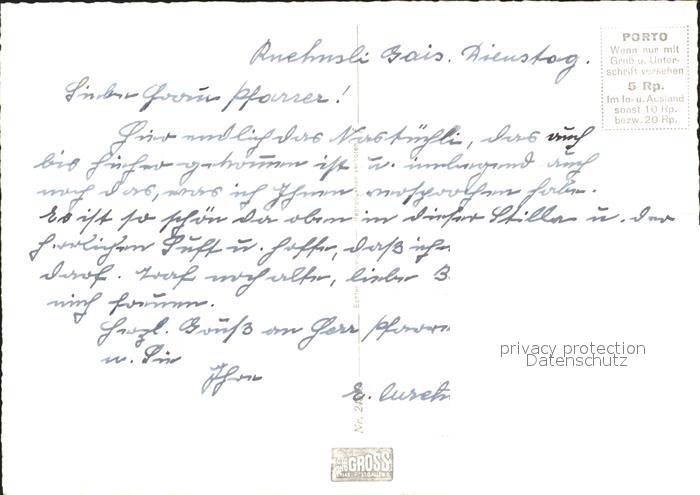 Ruehüsli Gais. Dienstag.
Liebe Frau Pfarrer!
Hier endlich das Nastüchli, das auch
bis hieher gekommen ist u. inliegend auch
noch das, was ich Ihnen versprochen habe.
Es ist so schön da oben in dieser Stille u. der
herrlichen Luft u. hoffe, daß ich
darf. Traf noch alte, liebe B
mich freuen.
Herzl. Gruß an Herr Pfarre
u. Sie
Ihre
E.
PORTO
Wenn nur mit
Gruß u. Unter-
schrift versehen
5 Rp.
Im In- u. Ausland
sonst 10 Rp.
bezw. 20 Rp.
privacy protection
Datenschutz
Nr.
GROSS